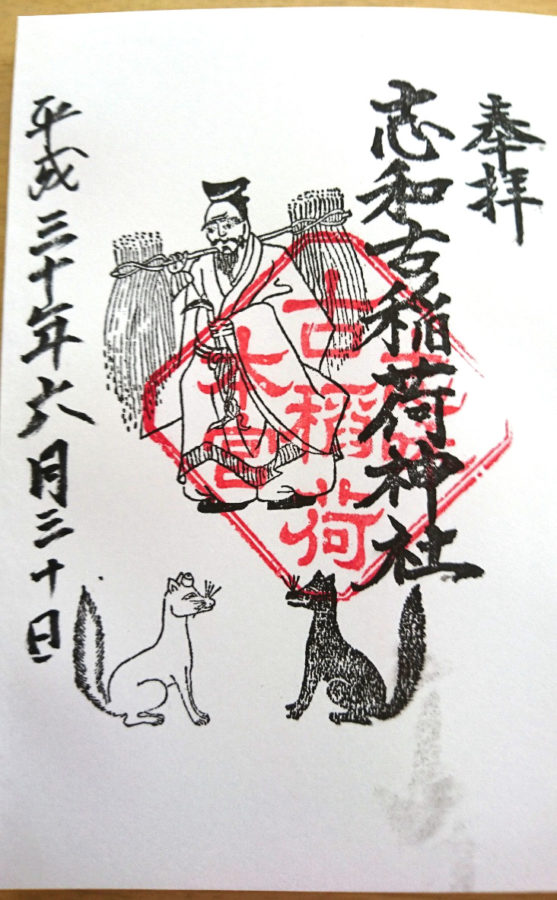 奉拝
志和古稲荷神社
古稲荷
本宮
平成三十年六月三十日